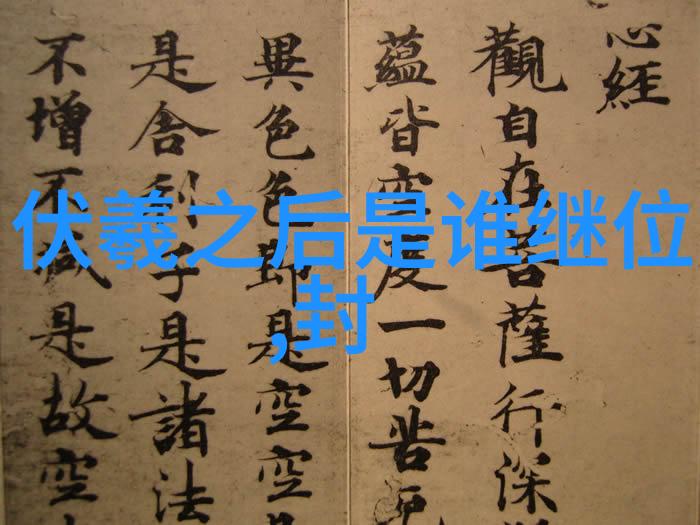 伏羲之后是谁继位
,封
心經
觀自在菩薩行深
蘊皆空度一切苦厄
異色色即是空空
是舍利子是諸法
不增不減是故空